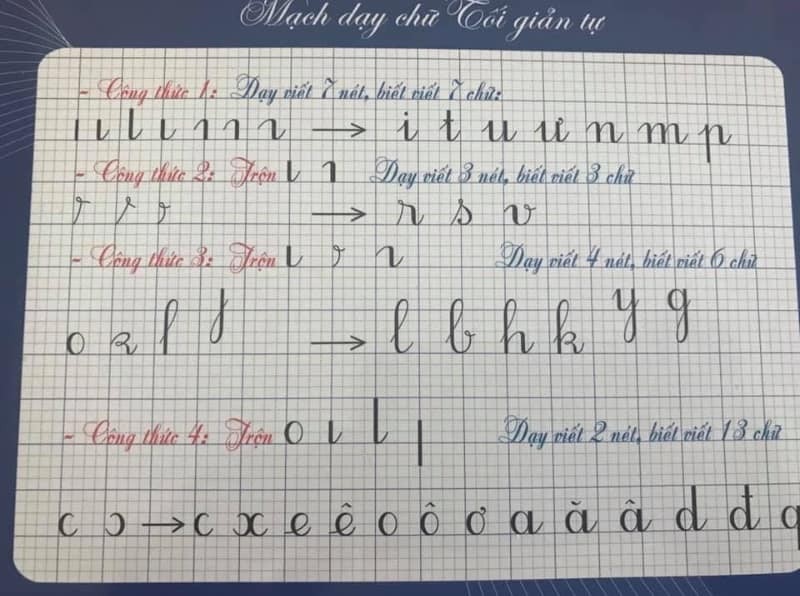 Mạch dạy chữ Tối giản tự
- Công thức 1: Dạy viết 7 nét, biết viết 7 chữ:
→ i t u ư n m p
- Công thức 2: Trộn Dạy viết 3 nét, biết viết 3 chữ
→ r s v
- Công thức 3: Trộn Dạy viết 4 nét, biết viết 6 chữ
→ l b h k y g
- Công thức 4: Trộn Dạy viết 2 nét, biết viết 13 chữ
c ɔ → c x e ê o ô ơ a ă â d đ q